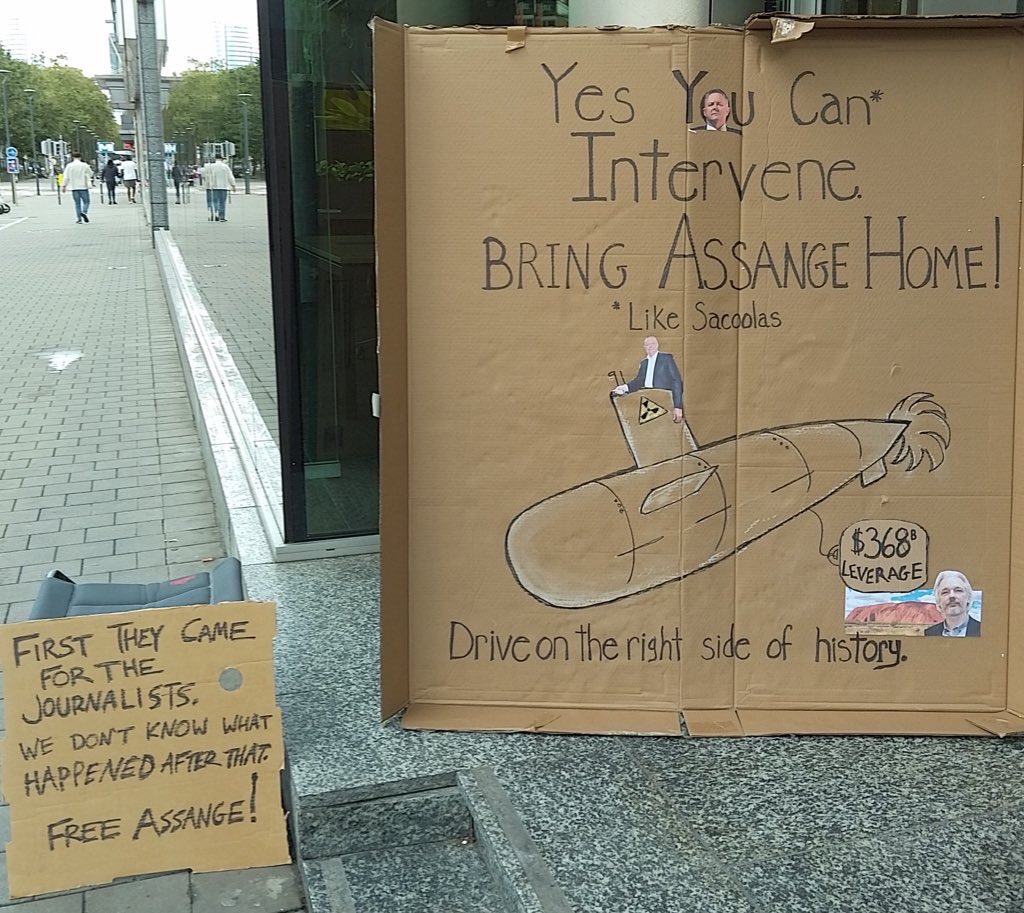 Yes You Can*
Intervene.
BRING ASSANGE HOME!
*Like Sacoolas
$368B
LEVERAGE
Drive on the right side of history.
FIRST THEY CAME
FOR THE
JOURNALISTS.
WE DON'T KNOW WHAT
HAPPENED AFTER THAT.
FREE ASSANGE!